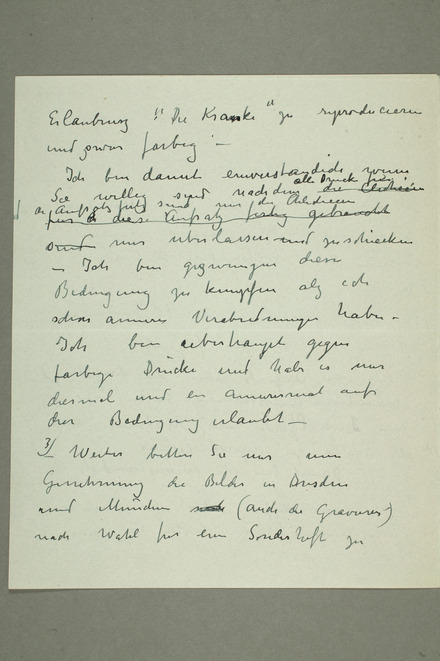 Erlaubnis "Die Kranke" zu reproducieren
und zwar farbig –
Ich bin damit einverstanden wenn
Sie willig sind nachdem alle Drucke für
den Aufsatz sind mir die Clicheen
für diese Aufsatz fertig gebracht
sind mir überlassen und zu schicken
– Ich bin gezwungen diese
Bedingung zu knüpfen als ich
schon andere Verabredungen habe –
Ich bin ueberhaupt gegen
farbige Drücke und habe es nur
diesmal und ein anderesmal auf
der Bedingung erlaubt –
3/ Weiter bitten Sie mir um
Genehmung die Bilder in Dresden
und München (auch die Gravures)
nach Wahl für ein Sonderheft zu